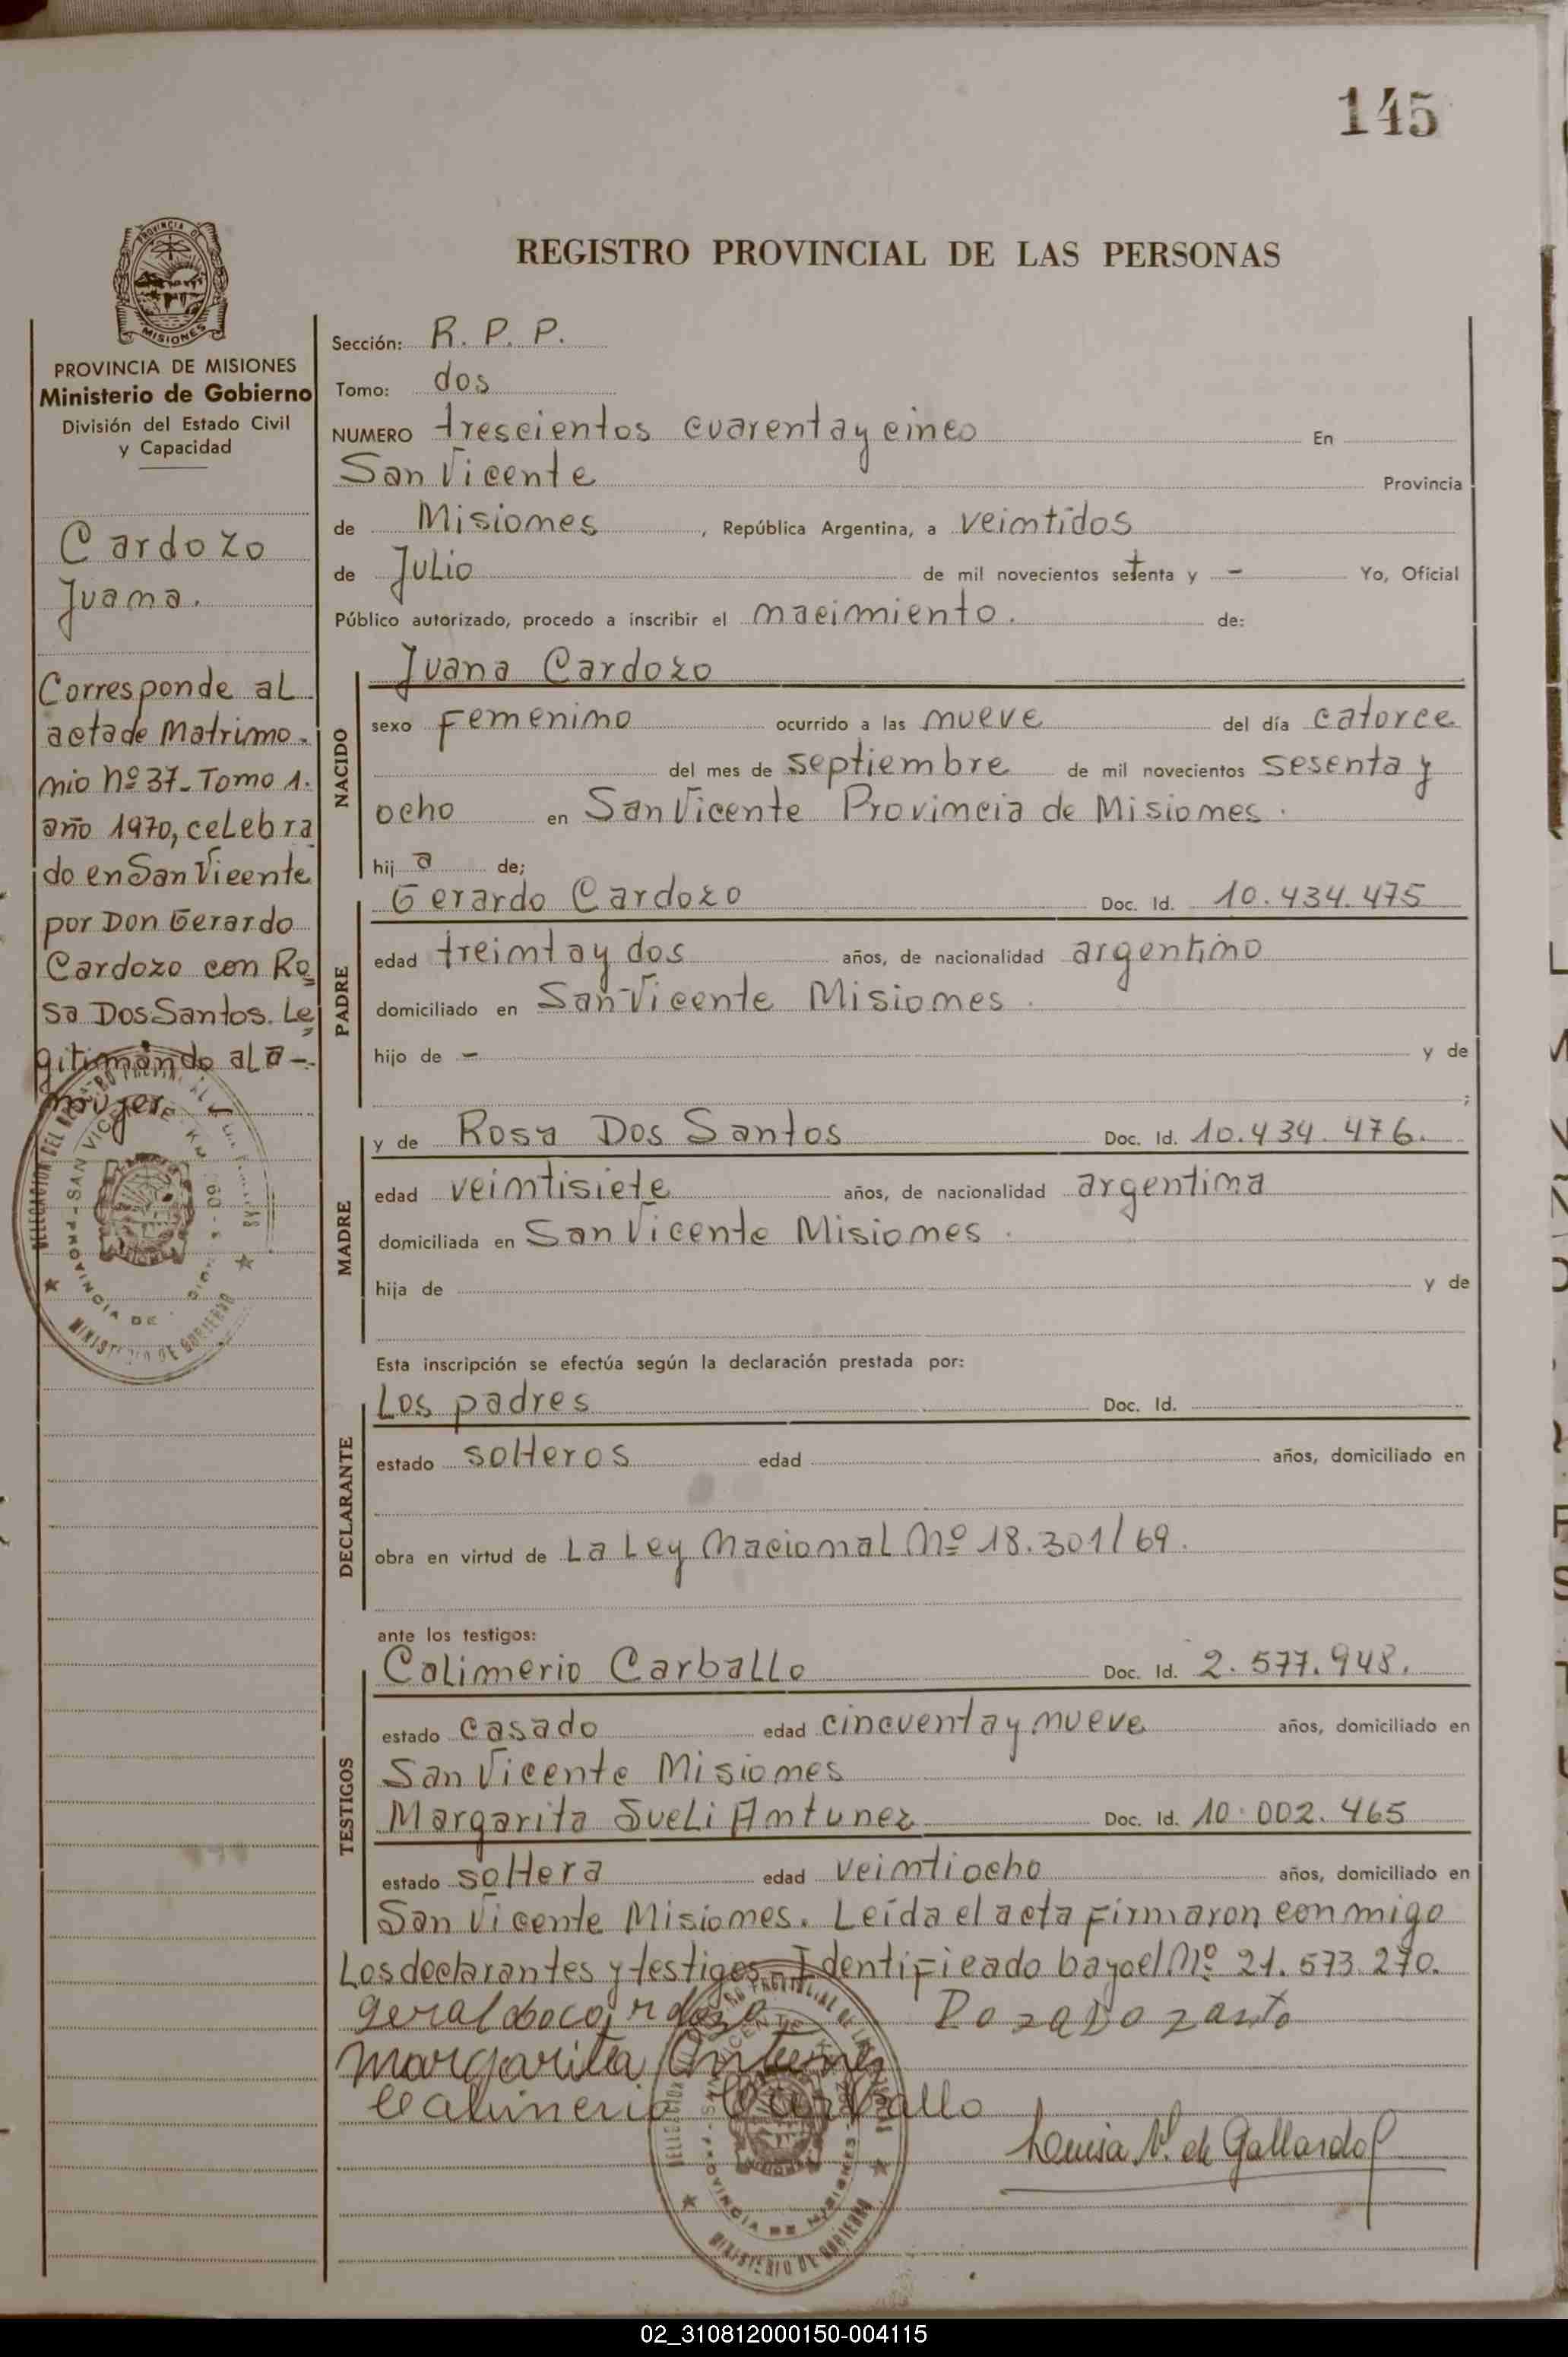 145
REGISTRO PROVINCIAL DE LAS PERSONAS
PROVINCIA DE
MISIONES
PROVINCIA DE MISIONES
Ministerio de Gobierno
División del Estado Civil
y Capacidad
Cardozo
Juana.
Corresponde al
acta de Matrimo-
nio Nº 37- Tomo 1.
año 1970, celebra
do en San Vicente
por Don Gerardo
Cardozo con Ro
sa Dos Santos. Le
gitimando al a-
mujer
Sección: R. P. P.
Tomo: dos
NUMERO trescientos cuarenta y cinco En
San Vicente Provincia
de Misiones, República Argentina, a veintidos
de Julio de mil novecientos setenta y - Yo, Oficial
Público autorizado, procedo a inscribir el nacimiento. de:
NACIDO
Juana Cardozo
sexo Femenino ocurrido a las nueve del día catorce
del mes de septiembre de mil novecientos sesenta y
ocho en San Vicente Provincia de Misiones.
hij a de;
PADRE
Gerardo Cardozo Doc. Id. 10.434.475
edad treinta y dos años, de nacionalidad argentino
domiciliado en San Vicente Misiones.
hijo de - y de
;
MADRE
y de Rosa Dos Santos Doc. Id. 10.434.476.
edad veintisiete años, de nacionalidad argentina
domiciliada en San Vicente Misiones.
hija de y de
Esta inscripción se efectúa según la declaración prestada por:
DECLARANTE
Los padres Doc. Id.
estado solteros edad años, domiciliado en
obra en virtud de La Ley Nacional Nº 18.301/69.
ante los testigos:
TESTIGOS
Calimerio Carballo Doc. Id. 2.577.948.
estado casado edad cincuenta y nueve años, domiciliado en
San Vicente Misiones
Margarita Sueli Antunez Doc. Id. 10.002.465
estado soltera edad veintiocho años, domiciliado en
San Vicente Misiones. Leída el acta firmaron conmigo
Los declarantes y testigos- Identificado bayo el Nº 21.573.270.
geraldo cardozo Roza Do zanto
Margarita Antunez
Calimerio Carballo
Louisa N. de Gallardo
MINISTERIO DE GOBIERNO
MINISTERIO DE GOBIERNO
02_310812000150-004115